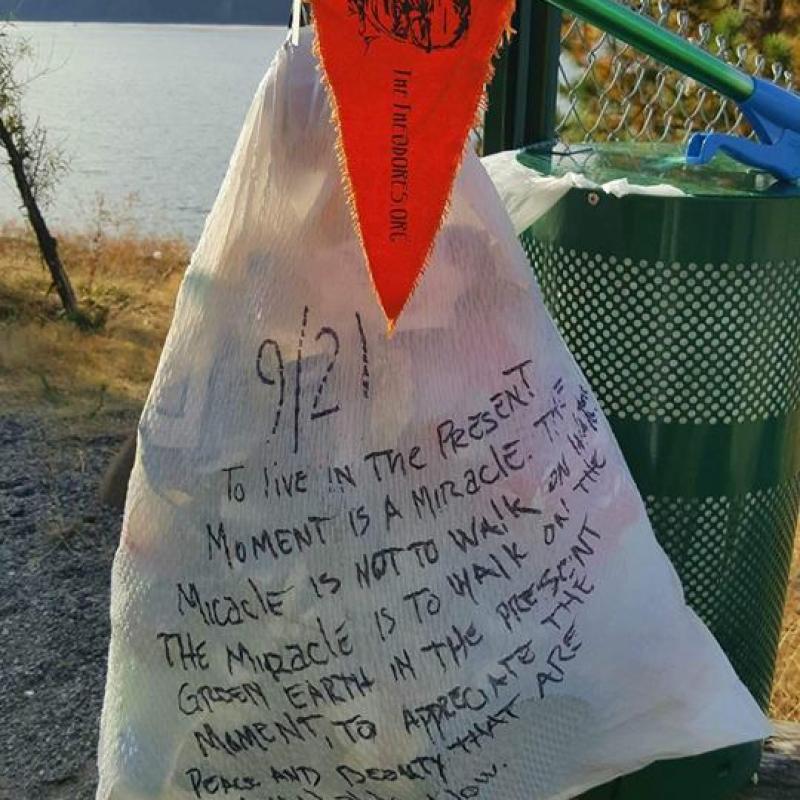 THE THEADORES.ORG
9/21
To live IN THE PRESENT
MOMENT IS A MIRACLE. THE
MICACLE IS NOT TO WALK ON
THE MIRACLE IS TO WALK ON THE
GREEN EARTH IN THE PRESENT
MOMENT, TO APPRECIATE THE
PEACE AND BEAUTY THAT ARE
Now.